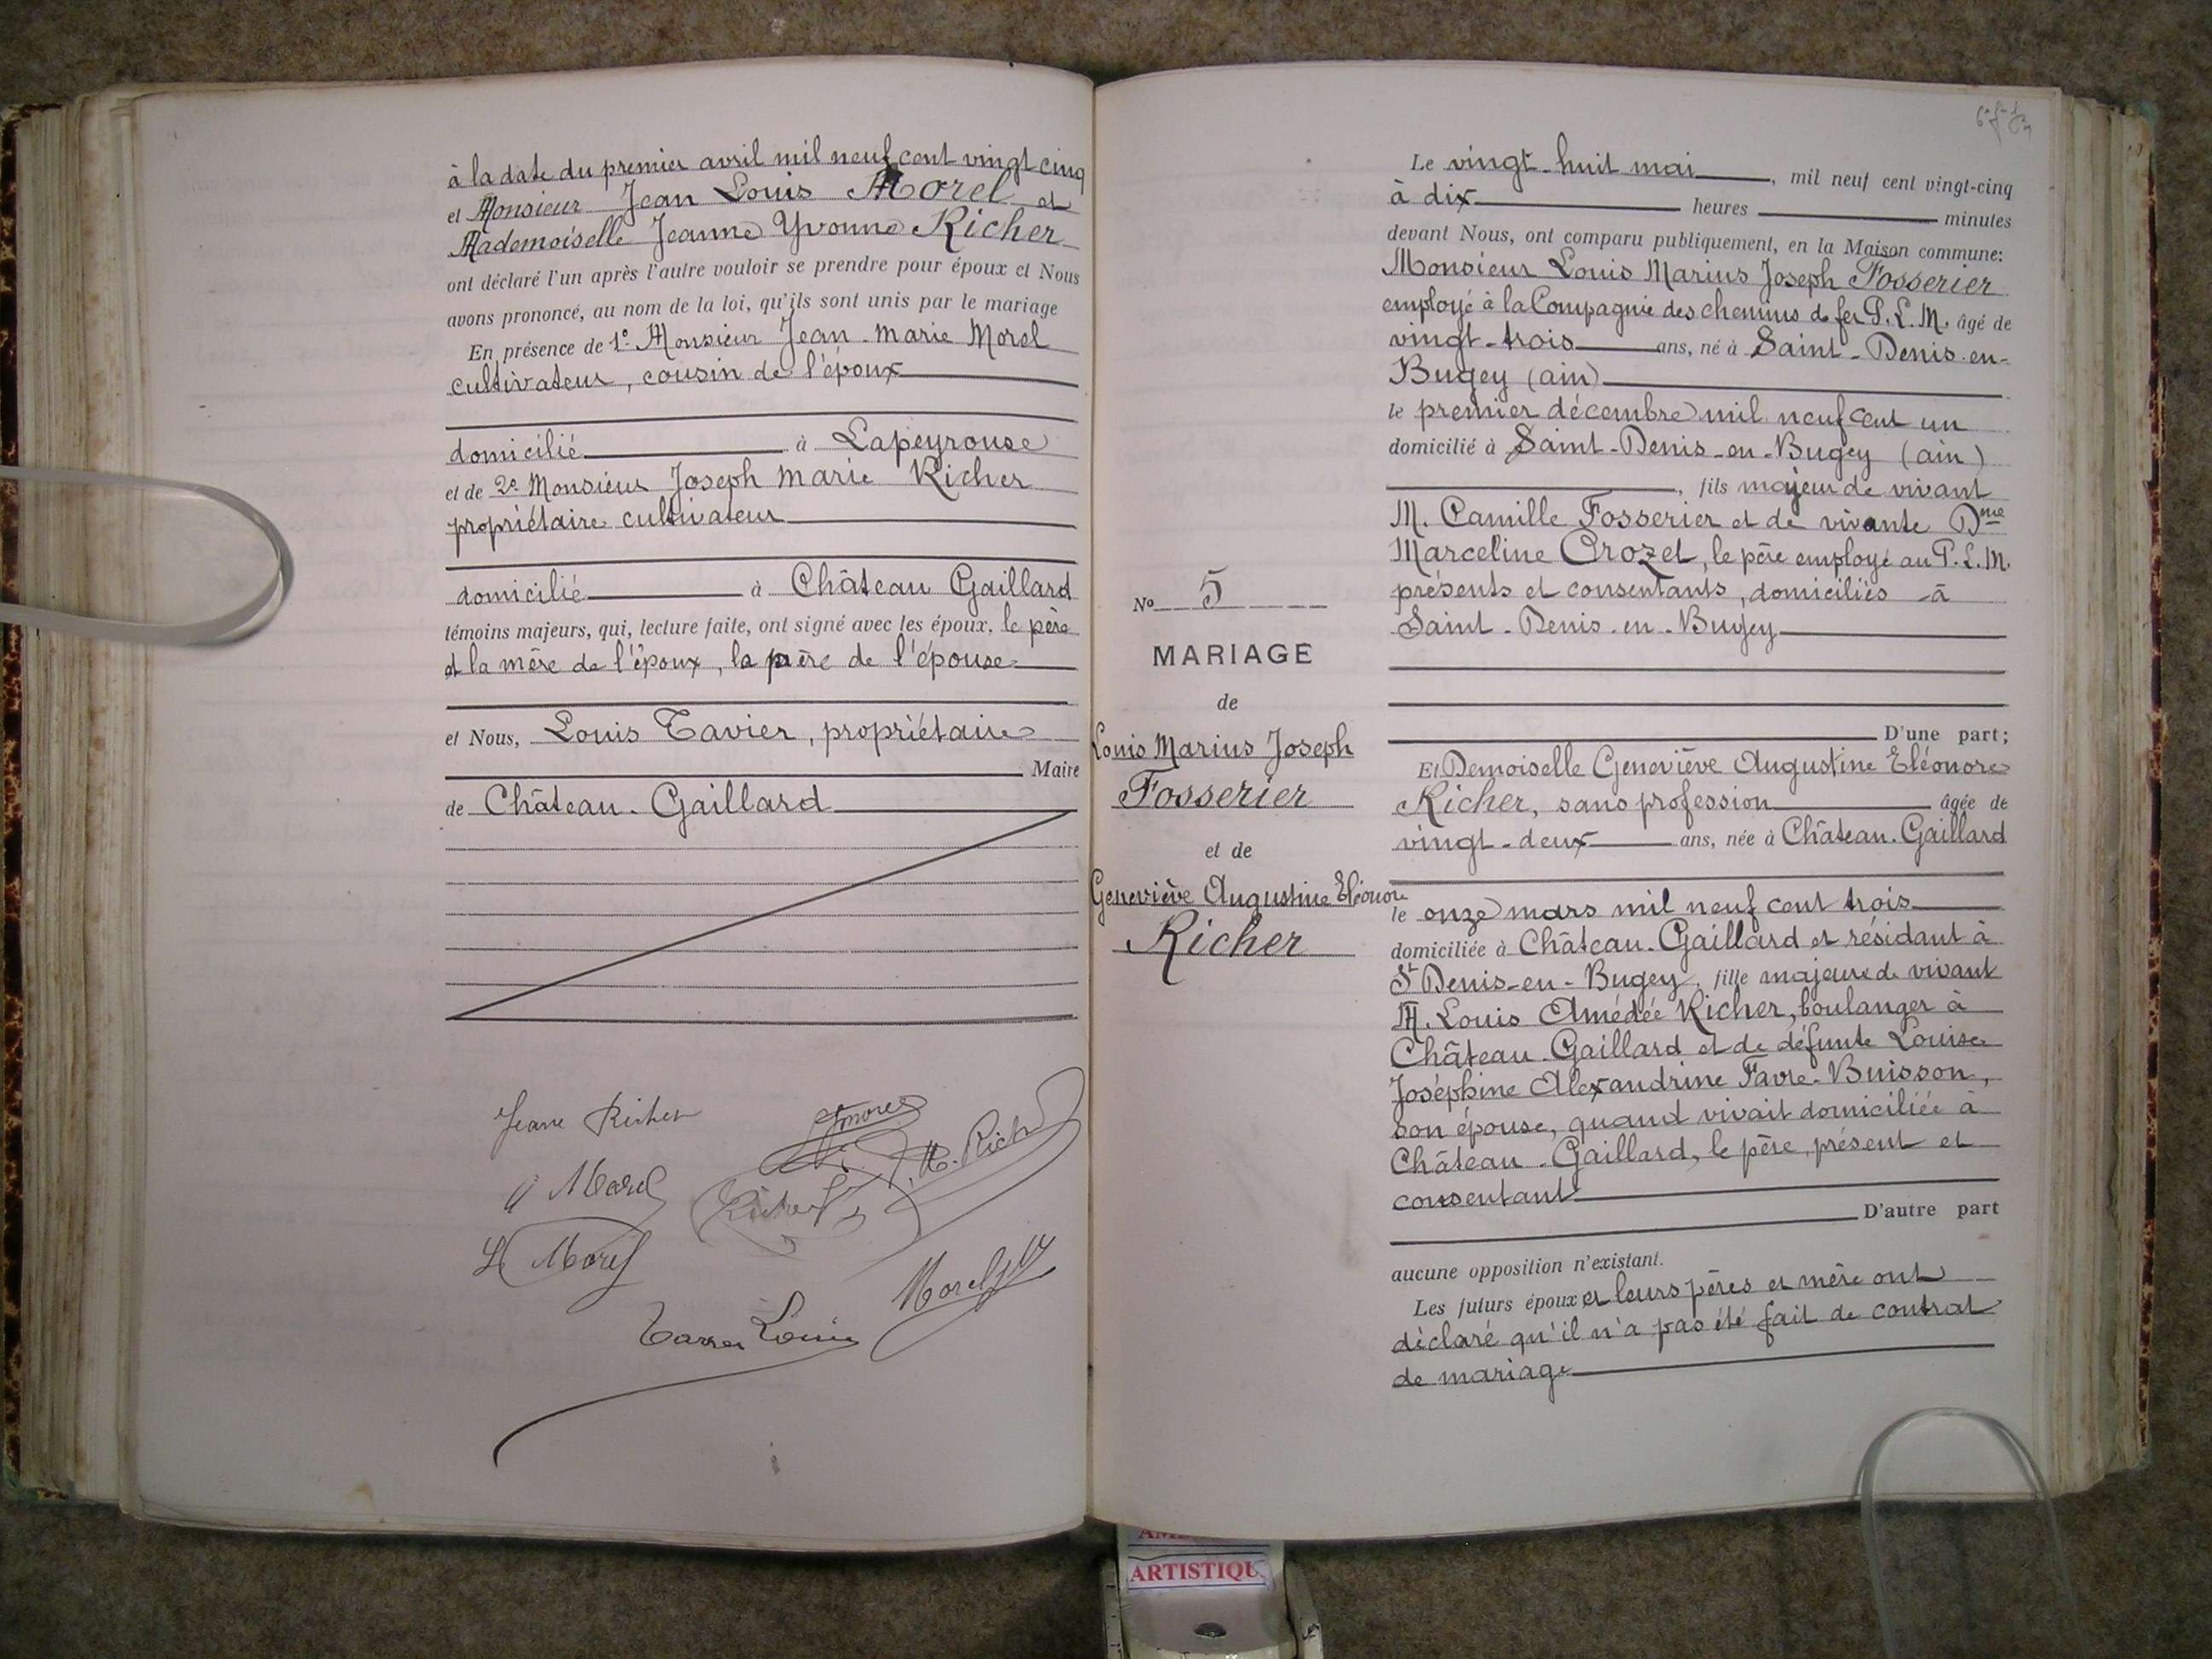 à la date du premier avril mil neuf cent vingt cinq
et Monsieur Jean Louis Morel et
Mademoiselle Jeanne Yvonne Richer
ont déclaré l'un après l'autre vouloir se prendre pour époux et Nous
avons prononcé, au nom de la loi, qu'ils sont unis par le mariage
En présence de 1° Monsieur Jean-Marie Morel
cultivateur, cousin de l'époux
domicilié à Lapeyrouse
et de 2° Monsieur Joseph Marie Richer
propriétaire cultivateur
domicilié à Château Gaillard
témoins majeurs, qui, lecture faite, ont signé avec les époux, le père
et la mère de l'époux, la mère de l'épouse
et Nous, Louis Tavier, propriétaire
Maire
de Château-Gaillard
Jeane Richer
Morel
Morel
Morel
Louis
N° 5
MARIAGE
de
Louis Marius Joseph
Fosserier
et de
Geneviève Augustine Eléonore
Richer
Le vingt-huit mai, mil neuf cent vingt-cinq
à dix heures minutes
devant Nous, ont comparu publiquement, en la Maison commune:
Monsieur Louis Marius Joseph Fosserier
employé à la Compagnie des chemins de fer P.L.M. âgé de
vingt-trois ans, né à Saint-Denis-en-
Bugey (ain)
le premier décembre mil neuf cent un
domicilié à Saint-Denis-en-Bugey (ain)
, fils majeur de vivant
M. Camille Fosserier et de vivante Dme
Marceline Crozet, le père employé au P.L.M.
présents et consentants, domiciliés à
Saint-Denis-en-Bugey
D'une part;
Et Demoiselle Geneviève Augustine Eléonore
Richer, sans profession âgée de
vingt-deux ans, née à Château-Gaillard
le onze mars mil neuf cent trois
domiciliée à Château-Gaillard et résidant à
St Denis-en-Bugey, fille majeure de vivant
M. Louis Amédée Richer, boulanger à
Château-Gaillard et de défunte Louise
Joséphine Alexandrine Favre-Buisson,
son épouse, quand vivait domiciliée à
Château-Gaillard, le père, présent et
consentant
D'autre part
aucune opposition n'existant.
Les futurs époux et leurs pères et mère ont
déclaré qu'il n'a pas été fait de contrat
de mariage
ARTISTIQU